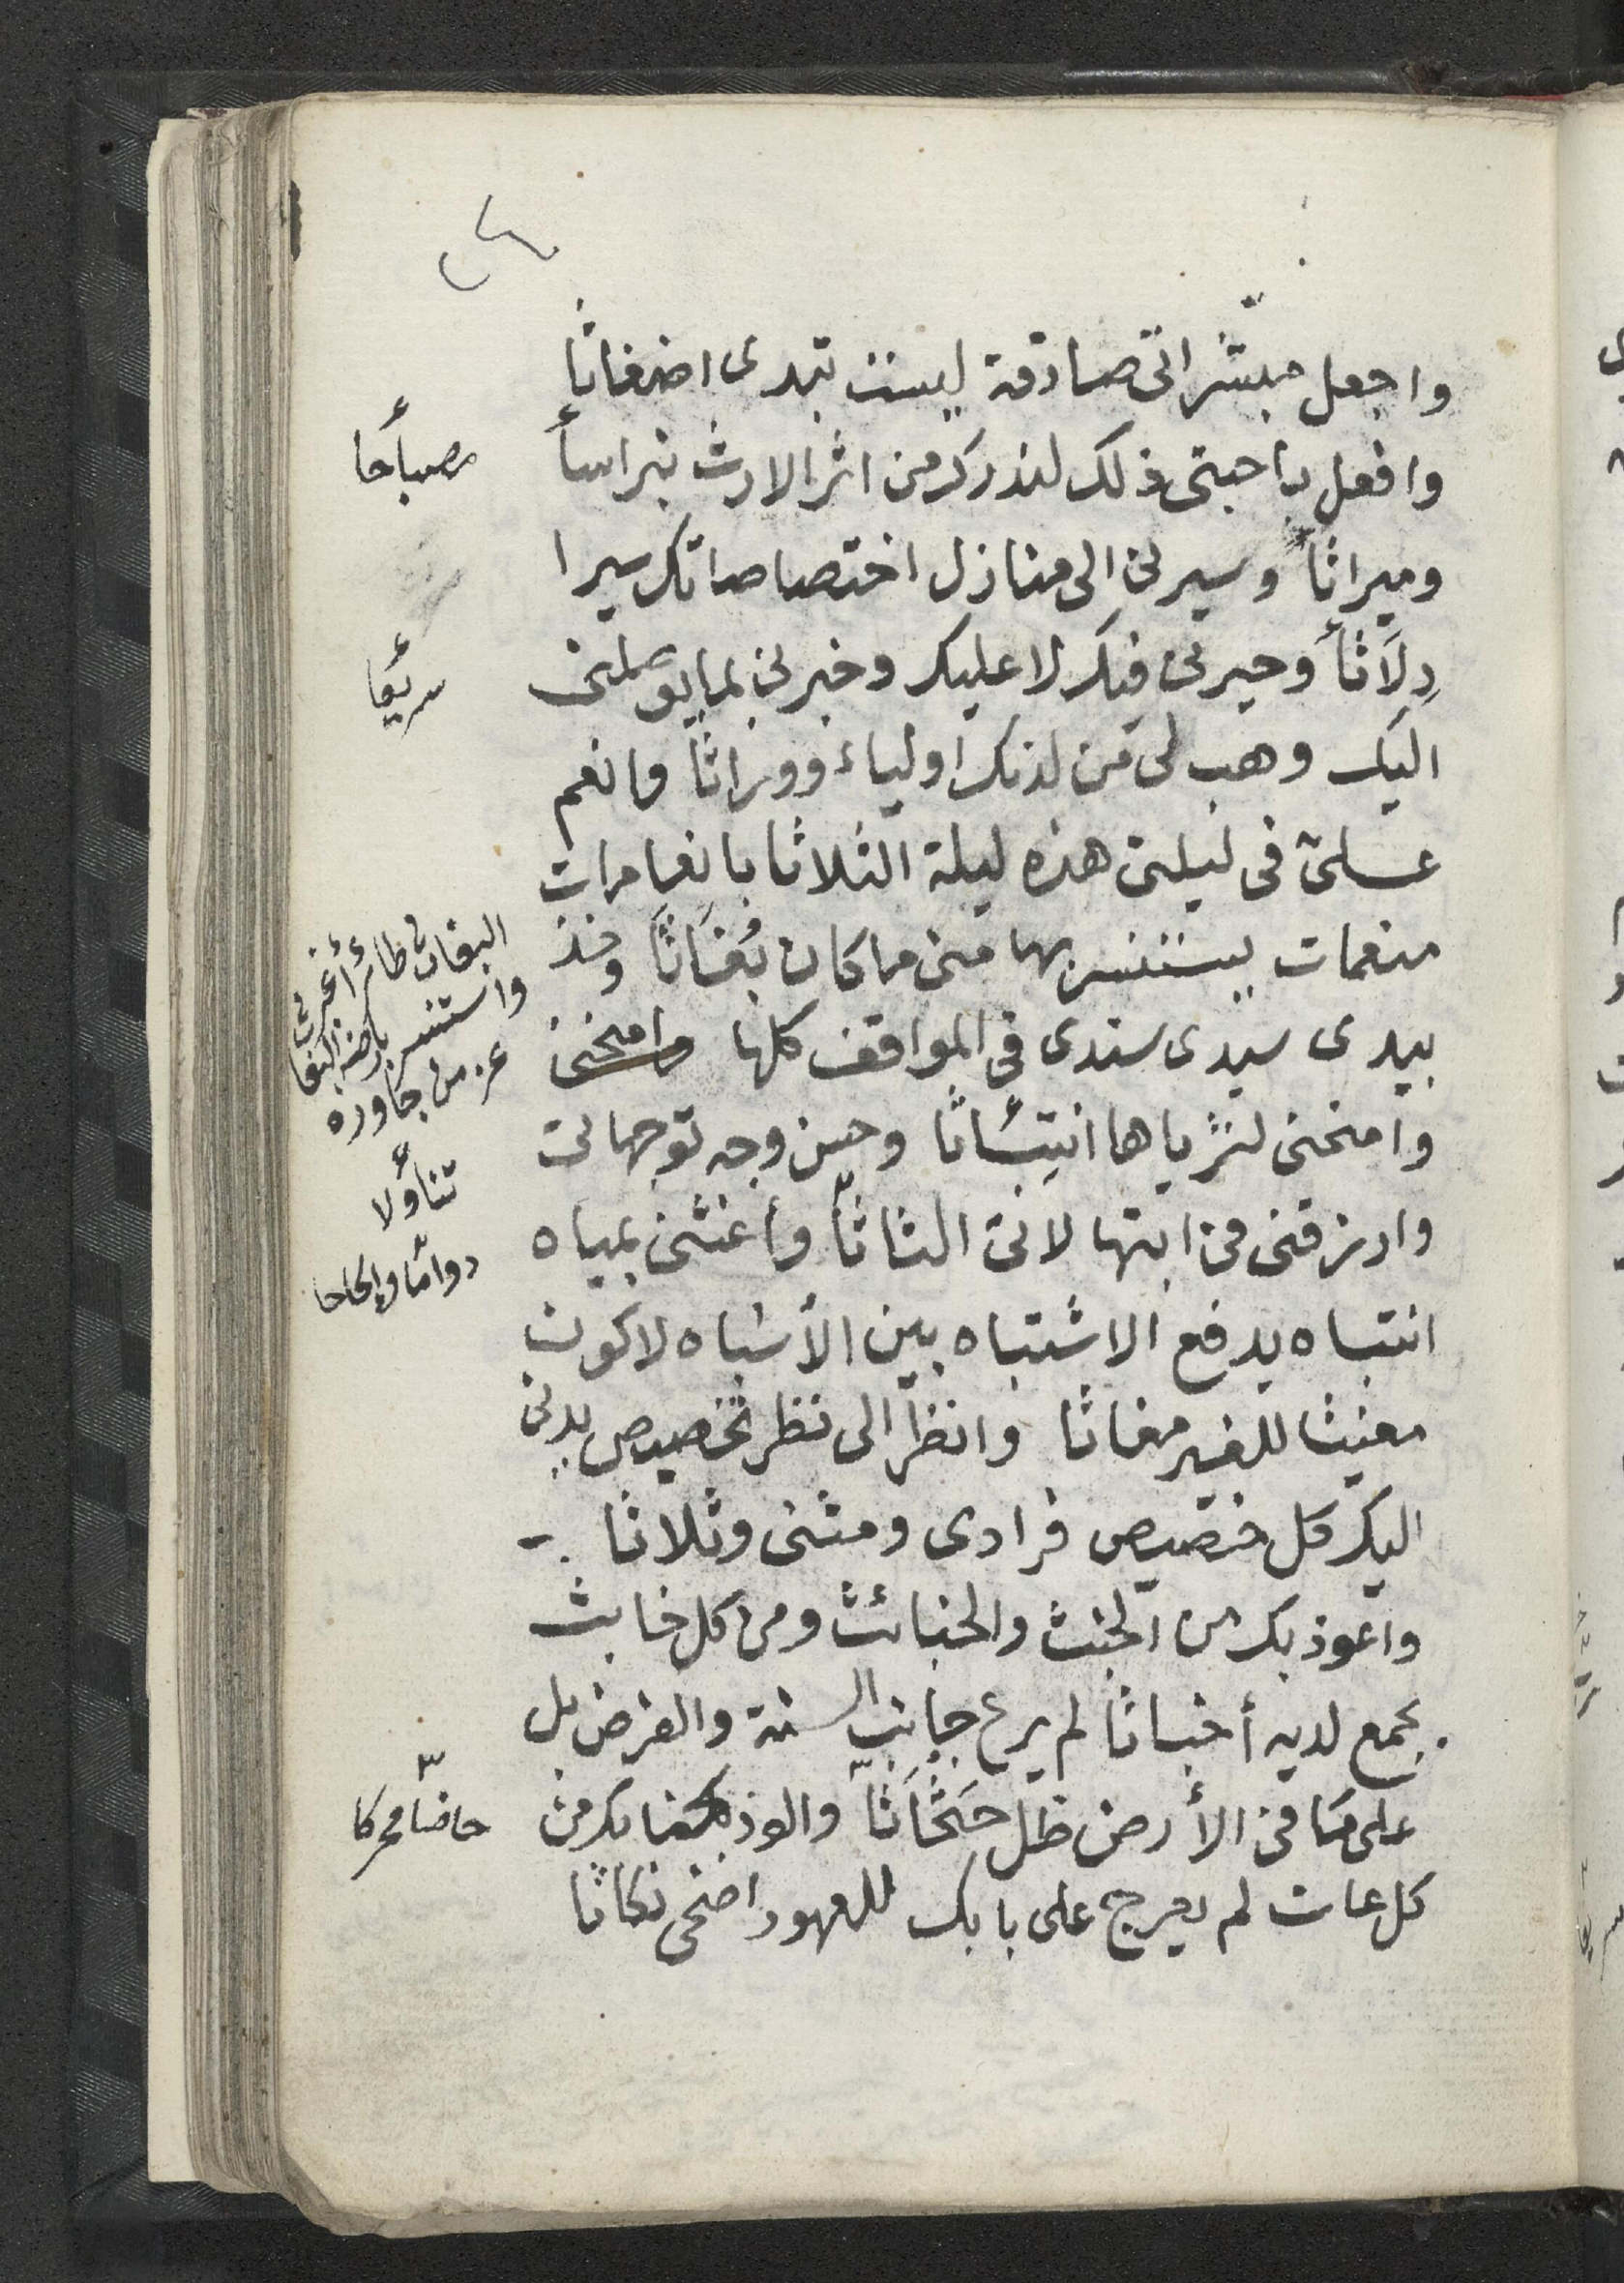 واجعل مبشراتى صادقة ليست تبدى اضغاثا
وافعل باحبتى ذلك لندرك من اثر الارث نبراسأ
مصباحا
وميراثا وسيرنى الى منازل اختصاصاتك سيرا
دِلَاثاً وحيرنى فيك لا عليك وخبرنى بما يوصلنى
سريعا
اليك وهب لى من لدنك اولياء ووراثا وانعم
على فى ليلتى هذه ليلة الثلاثا بانعامات
منعمات يستنسر بها منى ما كان بُغَاثًا وخذ
البغاث طائر أغبر
واستنسر بارضنا البغا
عز من جاوره
بيدى سيدى سندى فى المواقف كلها وامنحنى
وامنحنى لثرياها انتِئاثا وحسن وجه توجهاتى
تناؤلا
وارزقنى فى ابتهالاتى الثاثاً وأغثنى بمياه
دواما والحاحا
انتباه يدفع الاشتباه بين الأشباه لاكون
مغيثا للغير مغاثا وانظر الى نظر تخصيص يدنى
اليك كل خصيص فرادى ومثنى وثلاثا
واعوذ بك من الخبث والخبائث ومن كل خابث
بجمع لديه أخباثا لم يرع جانب السنة والفرض بل
على ما فى الأرض ظل حَثْحَاثاً والوذ بجنابك من
حاضا محركا
كل عات لم يعرج على بابك للعهود اضحى نكاثا